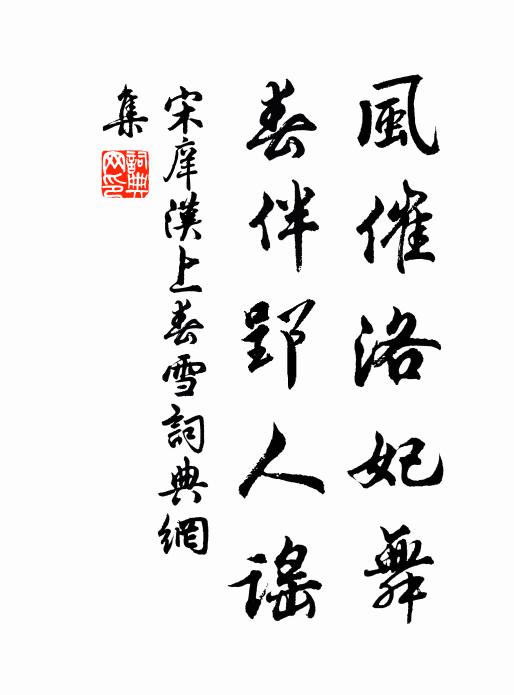 風催洛妃舞
春伴郢人謠
宋庠漢上春雪詞典網
集
詞典網印